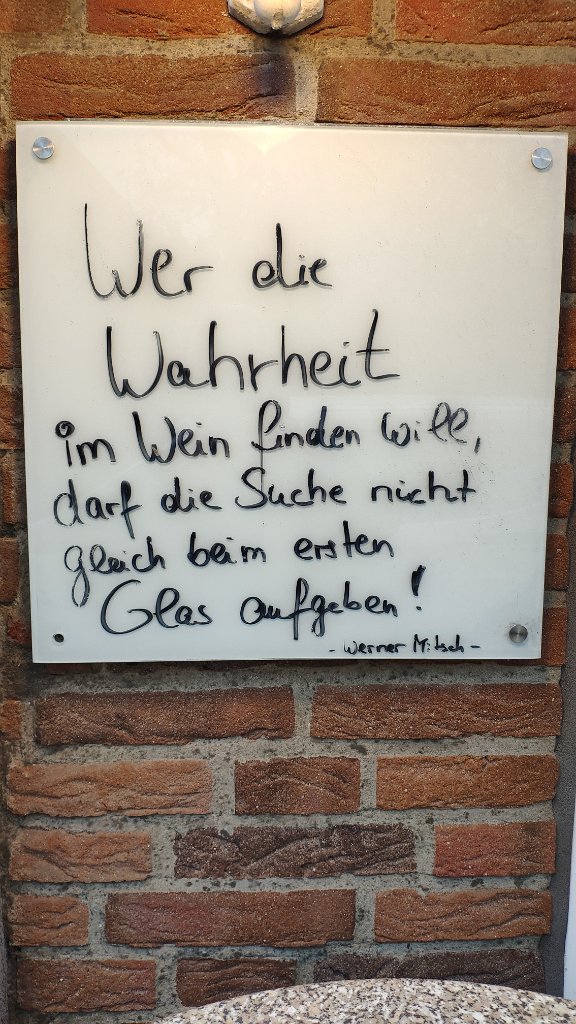 Wer die
Wahrheit
im Wein finden will,
darf die Suche nicht
gleich beim ersten
Glas aufgeben!
- Werner Mitsch -